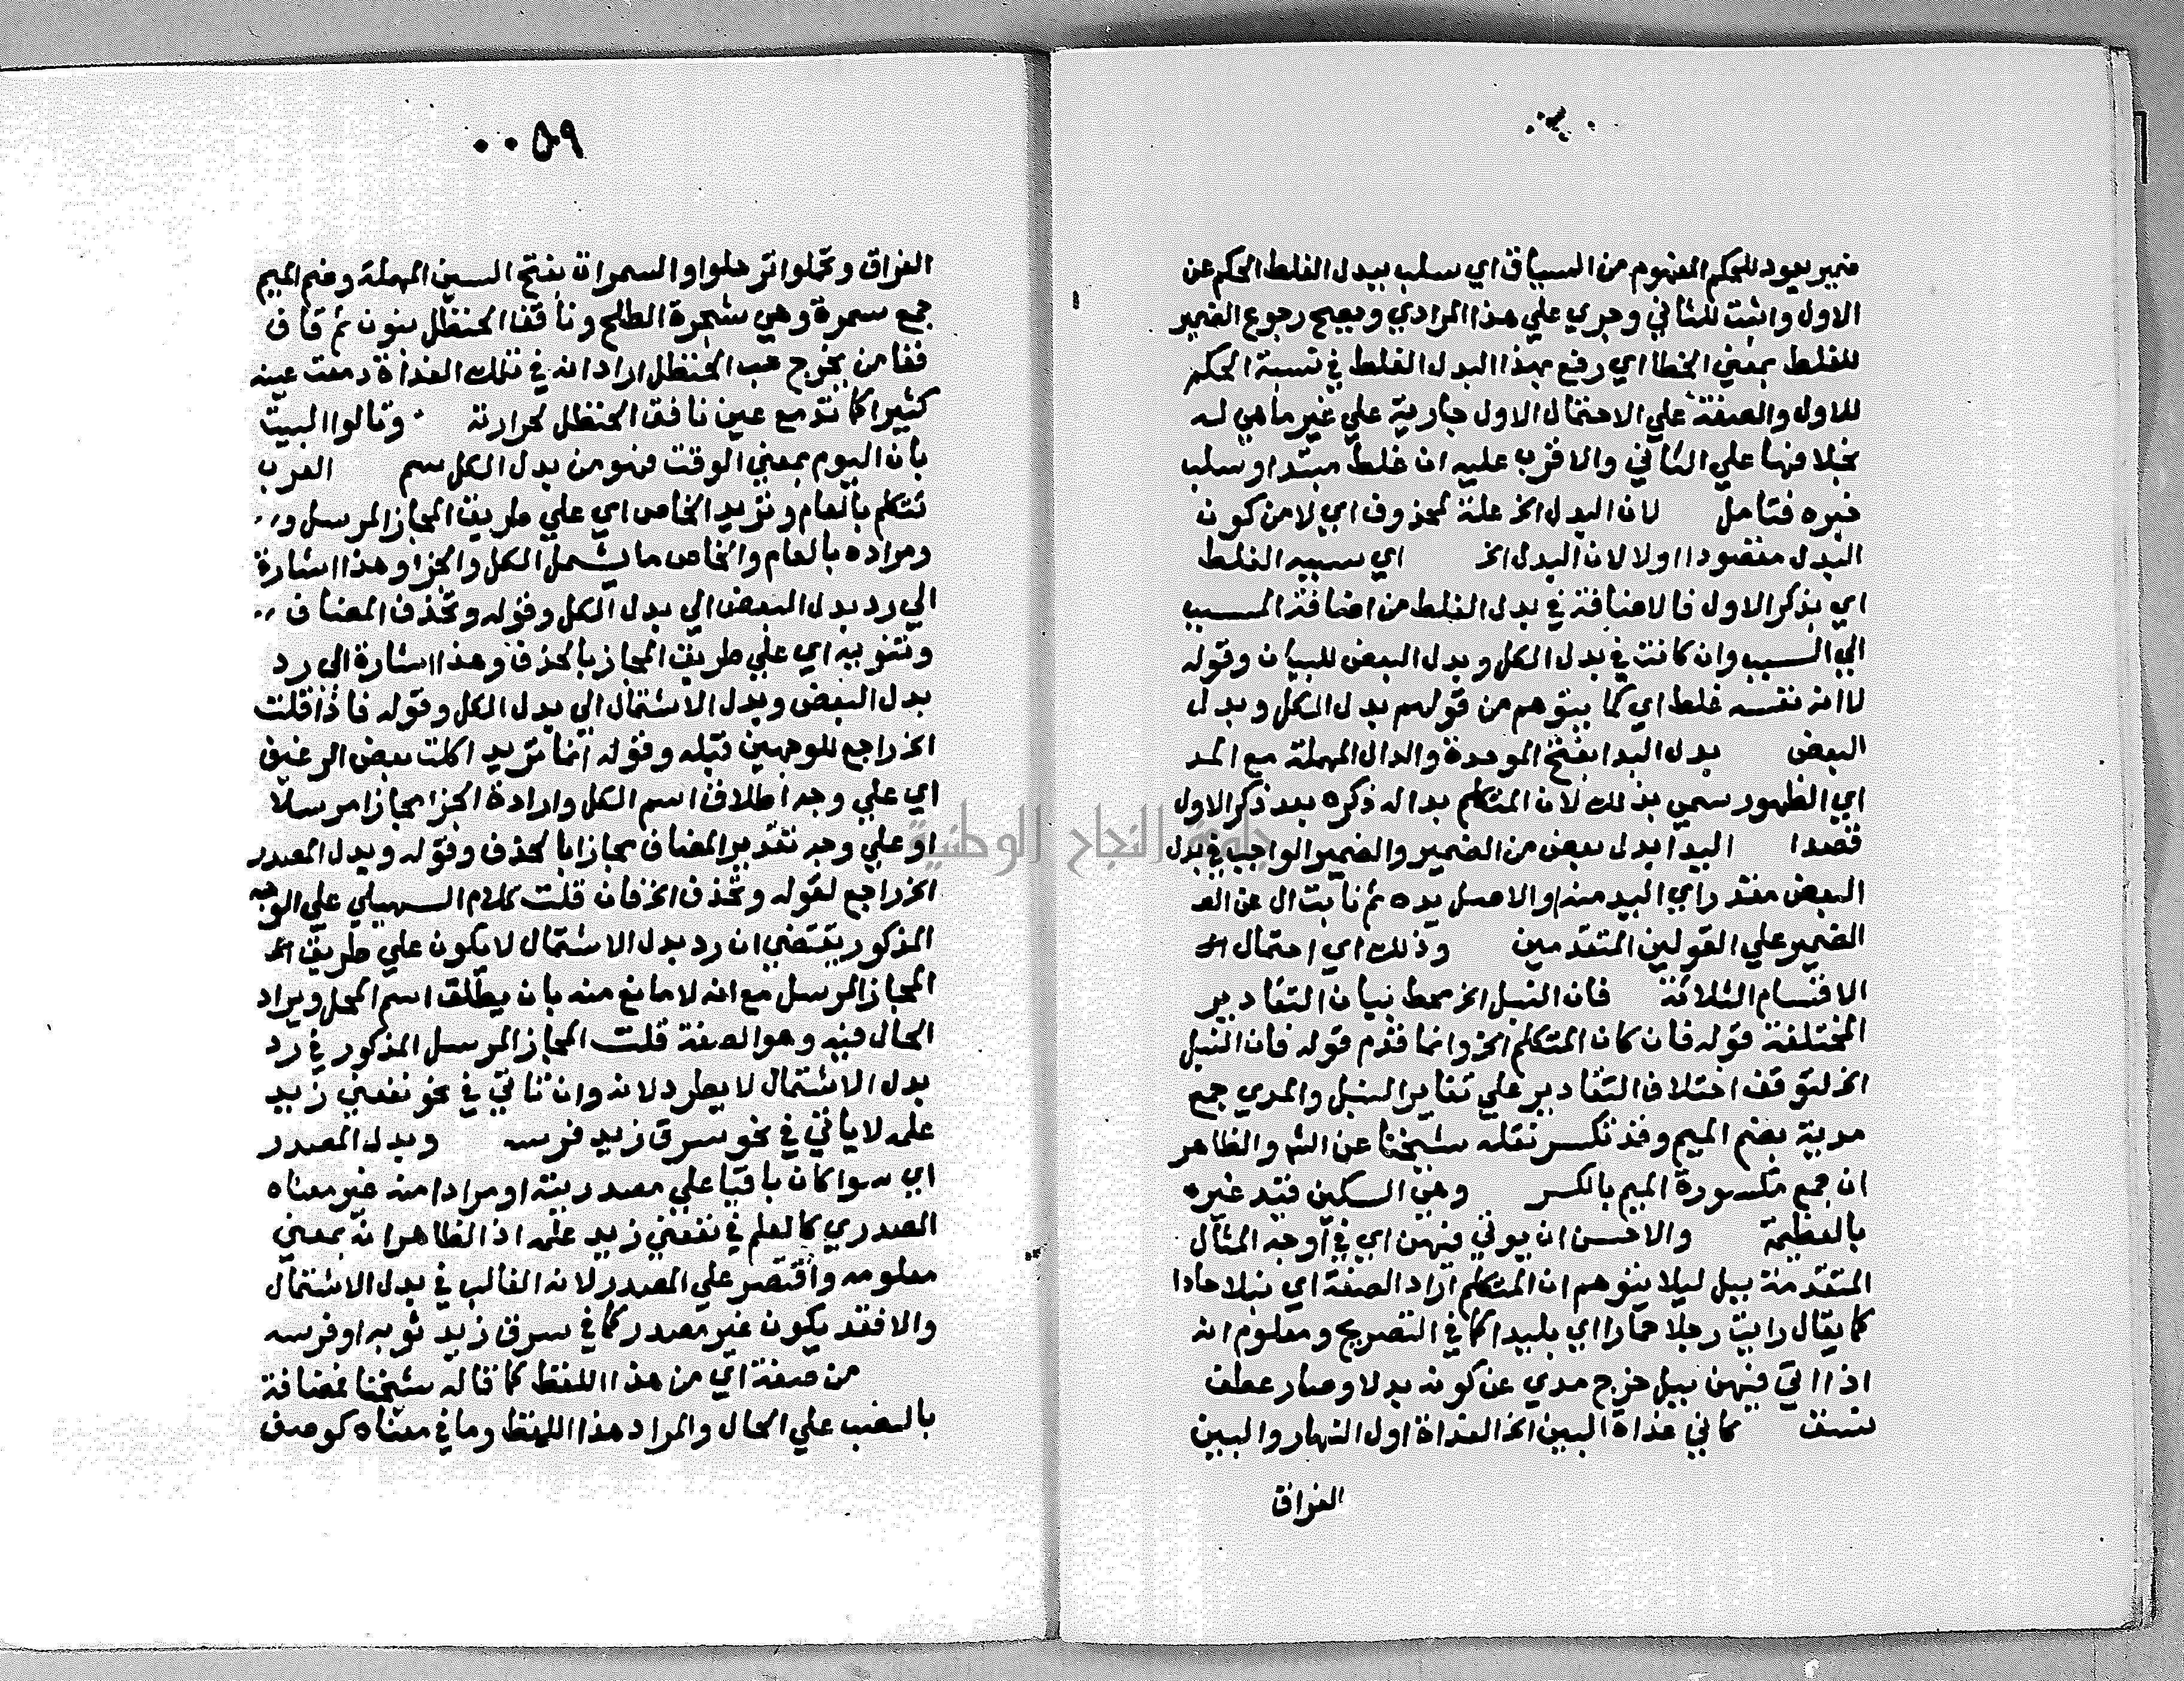 ضمير يعود للحكم المفهوم من السياق اي سلب ببدل الغلط الحكم عن
الاول واثبت للثاني وجري علي هذا المرادي ويصح رجوع الضمير
للغلط بمعني الخطا اي رفع بهذا البدل الغلط في نسبة الحكم
للاول والصفة علي الاحتمال الاول جارية علي غير ما هي له
بخلافها علي الثاني والاقرب عليه ان غلط مبتدا وسلب
خبره فتامل لان البدل الخ علة لمحذوف اي لا من كون
البدل مقصودا اولا لان البدل الخ اي سببه الغلط
اي بذكر الاول فالاضافة في بدل الغلط من اضافة المسبب
الي السبب وان كانت في بدل الكل وبدل البعض للبيان وقوله
لا انه نفسه غلط اي كما يتوهم من قولهم بدل الكل وبدل
البعض بدل البدا بفتح الموحدة والدال المهملة مع المد
اي الظهور سمي بذلك لان المتكلم بدا له ذكره بعد ذكر الاول
قصدا اليد بدل بعض من الضمير والضمير الواجب في بدل
البعض مقدر اي اليد منه او الاصل يده ثم نابت ال عن الضـ
الضمير علي القولين المتقدمين وذلك اي احتمال الخ
الاقسام الثلاثة فان النبل الخ محط بيان التقادير
المختلفة قوله فان كان المتكلم الخ وانما قدم قوله فان النبل
الخ لتوقف اختلاف التقادير علي تغاير النبل والمدي جمع
مدية بضم الميم وقد تكسر نقله شيخنا عن الش والظاهر
ان جمع مكسورة الميم بالكسر وهي السكين قيد غيره
بالعظيمة والاحسن ان يوتي فيهن اي في اوجه المثال
المتقدمة ببل ليلا يتوهم ان المتكلم اراد الصفة اي نبلا حادا
كما يقال رايت رجلا حمارا اي بليدا كما في التصريح ومعلوم انه
اذا اتي فيهن ببل خرج مدي عن كونه بدلا وصار عطف
نسق كاني غداة البين الخ الغداة اول النهار والبين
الفراق
٠٠٥٩
الفراق وتحملوا ترحلوا والسمرات بفتح السين المهملة وضم الميم
جمع سمرة وهي شجرة الطلح وناقف الحنظل بنون ثم قاف
ففا من يخرج حب الحنظل اراد انه في تلك الغداة دمعت عينه
كثيرا كما تدمع عين ناقف الحنظل لحرارته وتاولوا البيت
بان اليوم بمعني الوقت فهو من بدل الكل سم العرب
تتكلم بالعام وتريد الخاص اي علي طريق المجاز المرسل و
ومراده بالعام والخاص ما يشمل الكل والجزا وهذا اشارة
الي رد بدل البعض الي بدل الكل وقوله وتحذف المضاف
وتنويه اي علي طريق المجاز بالحذف وهذا اشارة الي رد
بدل البعض وبدل الاشتمال الي بدل الكل وقوله فاذا قلت
الخ راجع للوجهين قبله وقوله انما تريد اكلت بعض الرغيف
اي علي وجه اطلاق اسم الكل وارادة الجزا مجازا مرسلا
او علي وجه تقدير المضاف مجازا بالحذف وقوله وبدل المصدر
الخ راجع لقوله وتحذف الخ فان قلت كلام السهيلي علي الوجه
المذكور يقتضي ان رد بدل الاشتمال لا يكون علي طريق الخ
المجاز المرسل مع انه لا مانع منه بان يطلق اسم المحل ويراد
الحال فيه وهو الصفة قلت المجاز المرسل المذكور في رد
بدل الاشتمال لا يطرد لانه وان تاتي في نحو نفعني زيد
علمه لا ياتي في نحو سرق زيد فرسه وبدل المصدر
اي سوا كان باقيا علي مصدريته او مرادا منه غير معناه
المصدري كالعلم في نفعني زيد علمه اذ الظاهر انه بمعني
معلومه واقتصر علي المصدر لانه الغالب في بدل الاشتمال
والا فقد يكون غير مصدر كما في سرق زيد ثوبه او فرسه
من صفة اي من هذا اللفظ كما قاله شيخنا بمضافة
بالنصب علي الحال والمراد هذا اللفظ وما في معناه كوصف
جامعة النجاح الوطنية